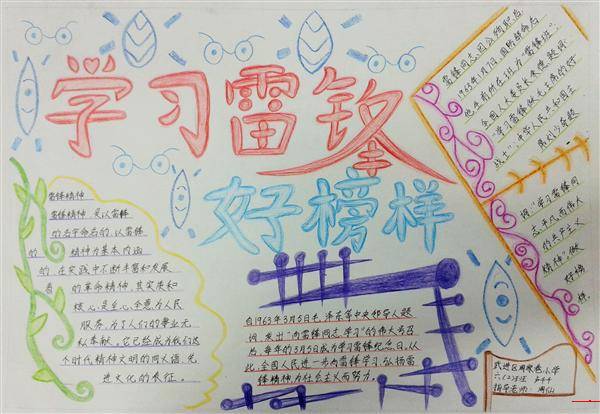 学习雷锋
好榜样
雷锋精神
雷锋精神,是以雷锋
的名字命名的,以雷锋
的 精神为基本内涵
的、在实践中不断丰富和发展
着 的革命精神,其实质和
核心是全心全意为人民
服务,为了人们的事业无
私奉献。它已经成为我们这
个时代精神文明的同义语、先
进文化的表征。
自1963年3月5日毛泽东等中央领导人题
词,发出“向雷锋同志学习”的伟大号召
后,每年的3月5日成为学习雷锋纪念日,从
此,全国人民进一步向雷锋学习,弘扬雷
锋精神,为社会主义而努力。
雷锋同志因公殉职后
1963年1月7日,国防部命名
他生前所在班为“雷锋班”。
“学习雷锋做毛主席的好
战士”
词“学习雷锋同
志平凡而伟大
的共产主义
精神”,做
好榜
样。
武进区
小学
指导老师:周仙